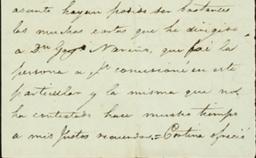 asunto hayan podido ser bastantes
las muchas cartas que he dirigido
a Dn Nariño, que fué la
persona a qn comisioné en este
particular y la misma que no
ha contestado hace mucho tiempo
a mis justos recuerdos.= Cortina